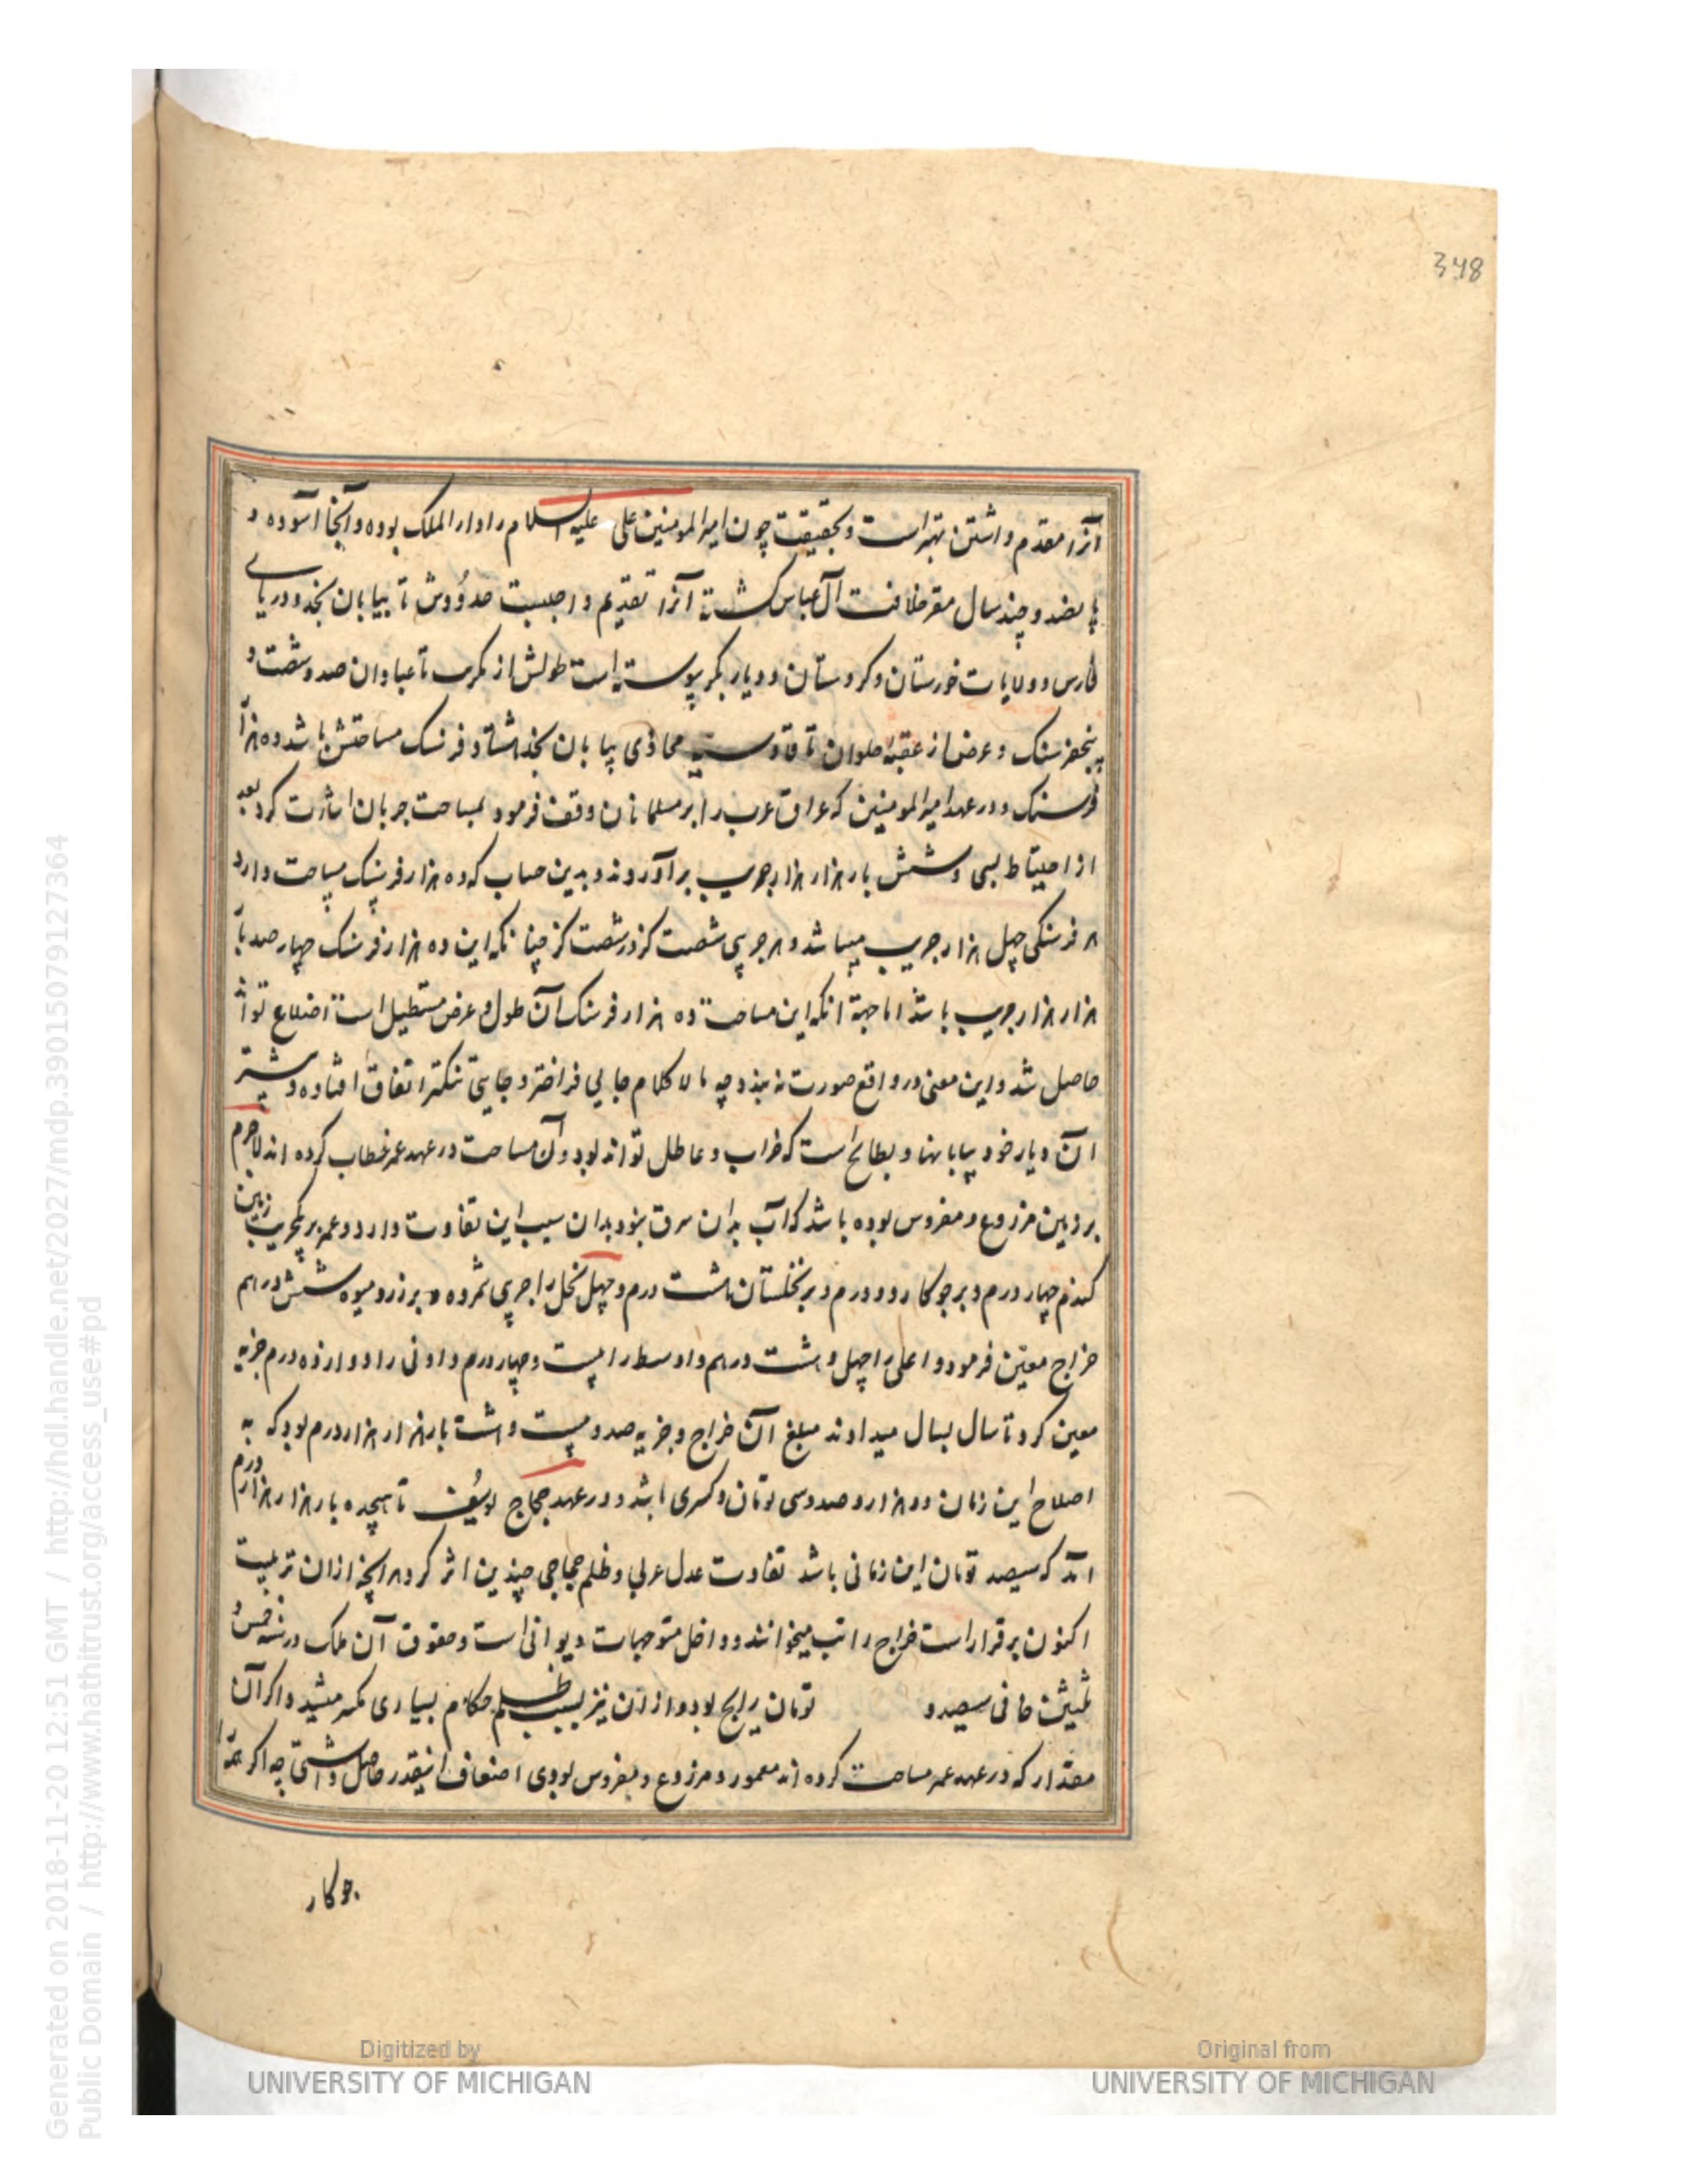 348
آنرا مقدم داشتن بهتر است و بحقیقت چون امیرالمومنین علی علیه السلام را دار الملک بوده و آنجا آسوده و
پانصد و چند سال مقر خلافت آل عباس کشته آنرا تقدیم واجبست حدودش تا بیابان نجد و دریای
فارس و ولایات خوزستان و کردستان و دیار بکر پیوسته است طولش از تکریت تا عبادان صد و شصت و
پنجفرسنک و عرض از عقبه حلوان تا قادسیه محاذی بیابان نجد هشتاد فرسنک مساحتش باشد ده هزار
فرسنک و در عهد امیرالمومنین که عراق عرب را بر مسلمانان وقف فرمود بمساحت جربان اشارت کرد بعد
از احتیاط بسی و شش بار هزار هزار جریب برآوردند و بدین حساب که ده هزار فرسنک مساحت دارد
هر فرسنکی چهل هزار جریب میباشد و هر جریبی شصت کز در شصت کز چنانکه این ده هزار فرسنک چهار صد بار
هزار هزار جریب باشد اما جهة انکه این مساحت ده هزار فرسنک آن طول و عرض مستطیل است اضلاع
حاصل شد و این معنی در واقع صورت نه بندد چه لا کلام جایی فراختر و جایی تنکتر اتفاق افتاده و بیشتر
ان دیار خود بیابانها و بطایح است که خراب و عاطل تواند بود و آن مساحت در عهد عمر خطاب کرده اند لاجرم
بر زمین مزروع و مغروس بوده باشد که آب بدان بود بدان سبب این تفاوت دارد و عمر بر یکجریب زمین
کندم چهار درم و بر جو کار دو درم و بر نخلستان هشت درم و چهل نخل را جریبی شمرده و بر رز و میوه شش درهم
خراج معین فرمود و اعلی را چهل و هشت درهم و اوسط را بیست و چهار درم و ادنی را دوازده درم جزیه
معین کرد تا سال بسال میدادند مبلغ آن خراج و جزیه صد و بیست و هشت بار هزار هزار درم بود که به
اصلاح این زمان دو هزار و صد و سی تومان و کسری باشد و در عهد حجاج یوسف تا هیجده بار هزار هزار درم
آمد که سیصد تومان این زمانی باشد تفاوت عدل عمری و ظلم حجاجی چندین اثر کرد هر انچه ازان تربیت
اکنون برقرار است خراج راتب میخوانند و داخل متوجهات دیوانی است و حقوق آن ملک در سنه خمس و
ثلثین خانی سیصد و تومان رایج بود و ازان نیز بسبب ظلم حکام بسیاری مکسر میشد و اکر آن
مقدار که در عهد عمر مساحت کرده اند معمور و مزروع و مغروس بودی اضعاف اینقدر حاصل داشتی چه اکر همه را
جو کار
Generated on 2018-11-20 12:51 GMT / http://hdl.handle.net/2027/mdp.39015079127364
Public Domain / http://www.hathitrust.org/access_use#pd
Digitized by
UNIVERSITY OF MICHIGAN
Original from
UNIVERSITY OF MICHIGAN